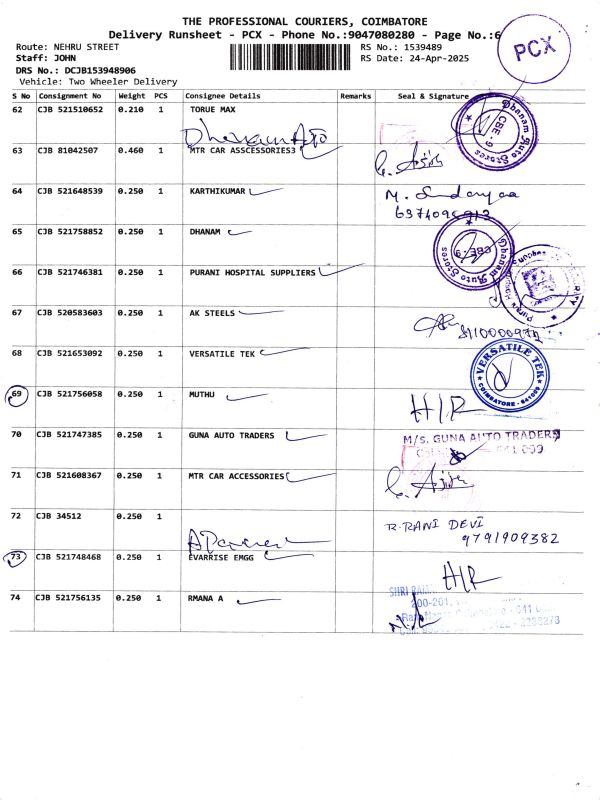 THE PROFESSIONAL COURIERS, COIMBATORE
Delivery Runsheet - PCX - Phone No.:9047080280 - Page No.:6
PCX
Route: NEHRU STREET
RS No.: 1539489
Staff: JOHN
RS Date: 24-Apr-2025
DRS No.: DCJB153948906
Vehicle: Two Wheeler Delivery
S No Consignment No Weight PCS Consignee Details Remarks Seal & Signature
62 CJB 521510652 0.210 1 TORUE MAX
Dhanam Auto Stores CBE-9
63 CJB 81042507 0.460 1 MTR CAR ASSCESSORIES3
64 CJB 521648539 0.250 1 KARTHIKUMAR
65 CJB 521758852 0.250 1 DHANAM
Dhanam Auto Stores CBE-9
66 CJB 521746381 0.250 1 PURANI HOSPITAL SUPPLIERS
67 CJB 520583603 0.250 1 AK STEELS
68 CJB 521653092 0.250 1 VERSATILE TEK
VERSATILE TEK
COIMBATORE - 641009
69 CJB 521756058 0.250 1 MUTHU
H/R
70 CJB 521747385 0.250 1 GUNA AUTO TRADERS
M/S. GUNA AUTO TRADERS
641 009
71 CJB 521608367 0.250 1 MTR CAR ACCESSORIES
72 CJB 34512 0.250 1
R. RANI DEVI
9791909382
73 CJB 521748468 0.250 1 EVARRISE EMGG
H/R
74 CJB 521756135 0.250 1 RMANA A
SHRI
200-201,